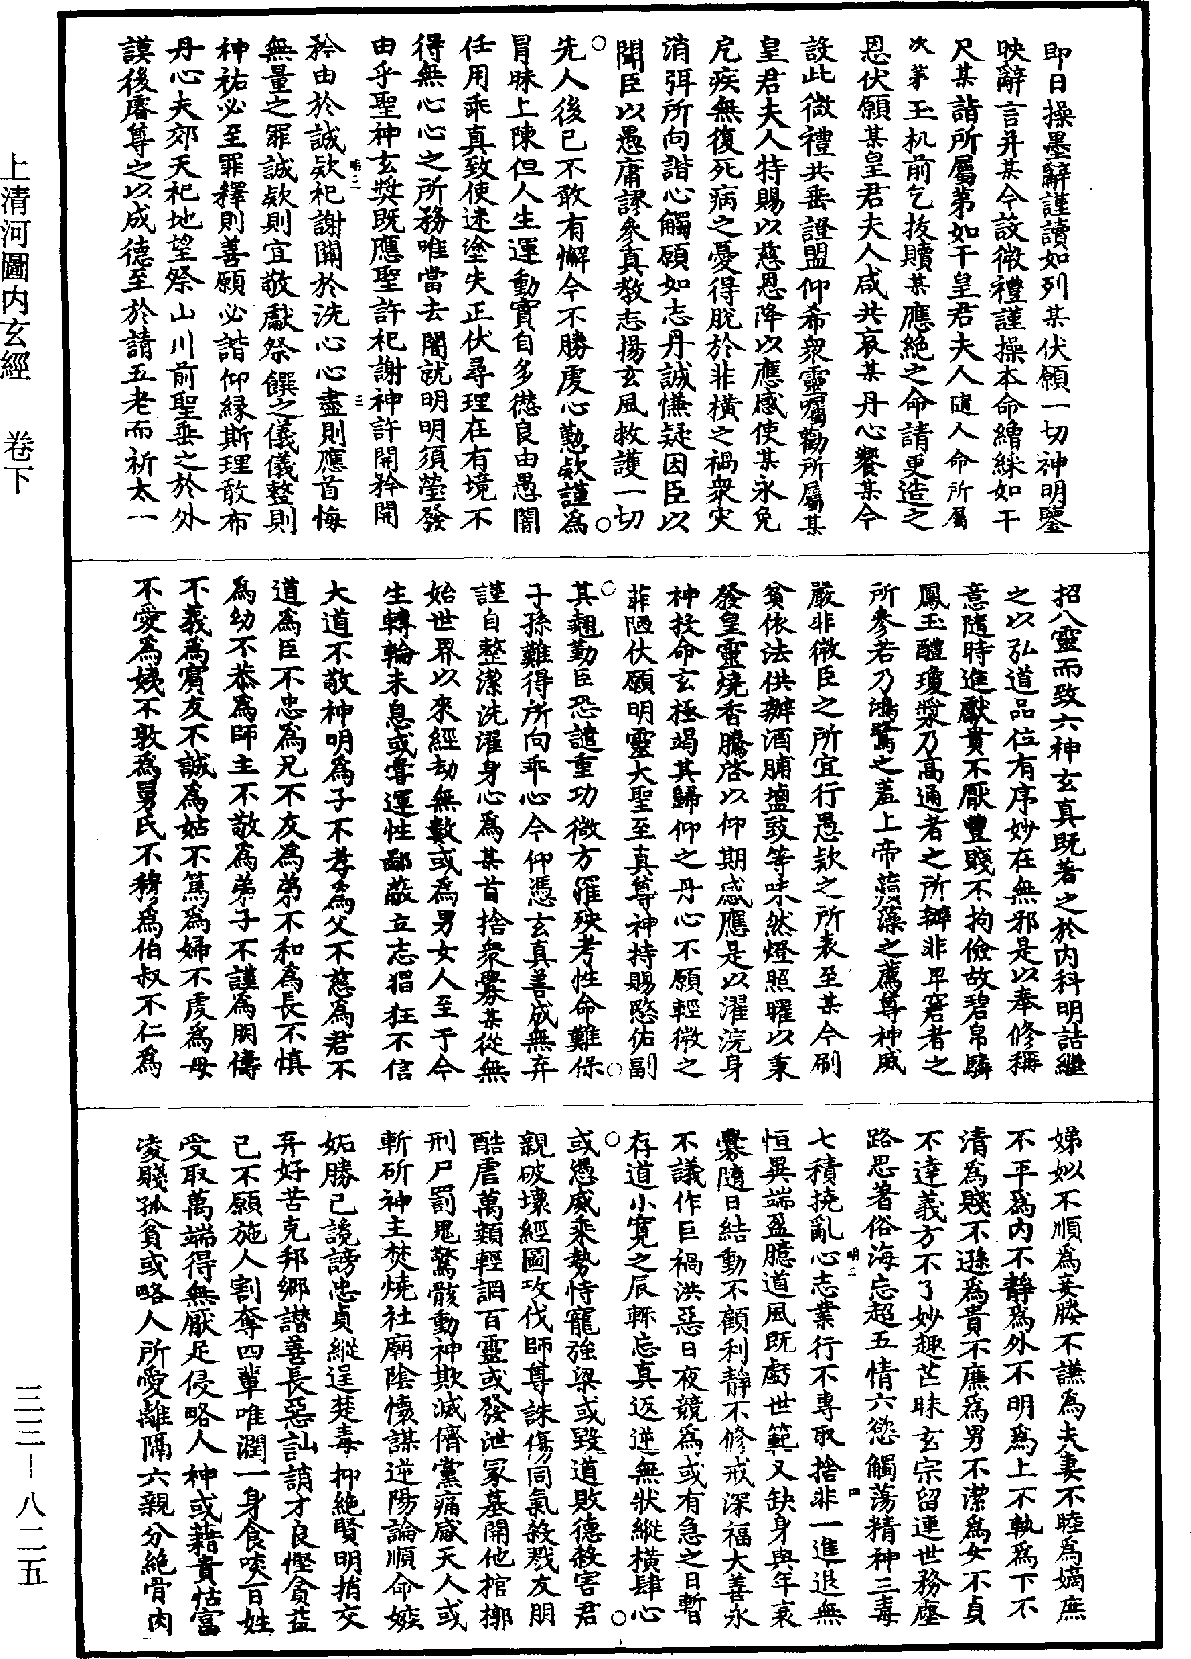 即日操墨辭謹讀如列某伏願一切神明鑒
映辭言并某今設微禮謹操本命繒綵如干
尺某詣所屬第如干皇君夫人隨人命所屬
次第玉机前乞拔贖某應絕之命請更造之
恩伏願某皇君夫人咸共哀某丹心饗某今
設此微禮共垂證盟仰希衆靈囑勸所屬某
皇君夫人特賜以慈恩降以應感使某永免
厄疾無復死病之憂得脫於非橫之禍衆灾
消弭所向諧心觸願如志丹誠慊疑因臣以
聞臣以愚庸謬參真教志揚玄風救護一切
先人後己不敢有懈今不勝虔心懃款謹為
冒昧上陳但人生運動實自多愆良由愚闇
任用乖真致使迷塗失正伏尋理在有境不
得無心心之所務唯當去闇就明明須瑩發
由乎聖神玄奬既應聖許祀謝神許開矜開
矜由於誠欵祀謝關於洗心心盡則應首悔
無量之罪誠欵則宜敬獻祭饌之儀儀整則
神祐必至罪釋則善願必諧仰緣斯理敢布
丹心夫郊天祀地望祭山川前聖垂之於外
謨後睿尊之以成德至於請五老而祈太一
招八靈而致六神玄真既著之於內科明詰繼
之以弘道品位有序妙在無邪是以奉修稱
意隨時進獻貴不厭豐賤不拘儉故碧帛驎
鳳玉醴瓊漿乃高通者之所辦非卑窘者之
所參若乃鴻鷺之羞上帝蘋藻之薦尊神威
嚴非微臣之所宜行愚款之所表至某今刷
貧依法供辦酒脯鹽豉等味然燈照曜以秉
發皇靈燒香騰啓以仰期感應是以濯浣身
神投命玄極竭其歸仰之丹心不願輕微之
菲陋伏願明靈大聖至真尊神特賜愍佑副
其翹勤臣恐譴重功微方罹殃考性命難保
子孫難得所向乖心今仰憑玄真善成無弃
謹自整潔洗濯身心為某首捨衆釁某從無
始世界以來經劫無數或為男女人至于今
生轉輪未息或嘗運性鄙蔽立志猖狂不信
大道不敬神明為子不孝為父不慈為君不
道為臣不忠為兄不友為弟不和為長不慎
為幼不恭為師主不敬為弟子不謹為朋儔
不義為賓友不誠為姑不篤為婦不虔為母
不愛為姨不敦為舅氏不穆為伯叔不仁為
娣姒不順為妾媵不謙為夫妻不睦為嫡庶
不平為內不靜為外不明為上不執為下不
清為賤不遜為貴不廉為男不潔為女不貞
不達義方不了妙趣芒昧玄宗留連世務塵
路思著俗海忘超五情六慾觸蕩精神三毒
七積撓亂心志業行不專取捨非一進退無
恒異端盈臆道風既虧世範又缺身與年衰
釁隨日結動不顧利靜不修戒深福大善永
不議作巨禍洪惡日夜競為或有急之日暫
存道小寛之辰輒忘真返逆無狀縱橫肆心
或憑威乘勢恃寵強梁或毀道敗德殺害君
親破壞經圖攻伐師尊誅傷同氣殺戮友朋
酷虐萬類輕誷百靈或發泄冢墓開他棺槨
刑尸罰鬼驚駭動神欺滅儕黨痛感天人或
斬斫神主焚燒社廟陰懷謀逆陽論順命嫉
妬勝己謗訕忠貞縱逞楚毒抑絕賢明捎交
弃好苦克邦鄉譖善長惡訕誚才良慳貪益
己不願施人割奪四輩唯潤一身食啖百姓
受取萬端得無厭足侵略人神或藉貴怙富
凌賤孤貧或略人所愛離隔六親分絕骨肉
上清河圖內玄經　卷下
三三－八二五